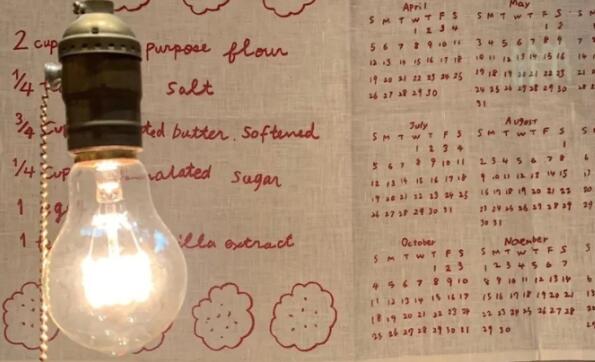 2 cup purpose flour
1/4 salt
3/4 butter. softened
1/4 cup sugar
1
1 extract
April
S M T W T F S
1 2 3 4
5 6 7 8 9 10 11
12 13 14 15 16 17 18
19 20 21 22 23 24 25
26 27 28 29 30
May
S M T W T F S
1 2
3 4 5 6 7 8 9
10 11 12 13 14 15 16
17 18 19 20 21 22 23
24 25 26 27 28 29 30
31
July
S M T W T F S
1 2 3 4
5 6 7 8 9 10 11
12 13 14 15 16 17 18
19 20 21 22 23 24 25
26 27 28 29 30 31
August
S M T W T F S
1
2 3 4 5 6 7 8
9 10 11 12 13 14 15
16 17 18 19 20 21 22
23 24 25 26 27 28 29
30 31
October
S M T W T F S
1 2 3
4 5 6 7 8 9 10
11 12 13 14 15 16 17
18 19 20 21 22 23 24
25 26 27 28 29 30 31
November
S M T W T F S
1 2 3 4 5 6 7
8 9 10 11 12 13 14
15 16 17 18 19 20 21
22 23 24 25 26 27 28
29 30